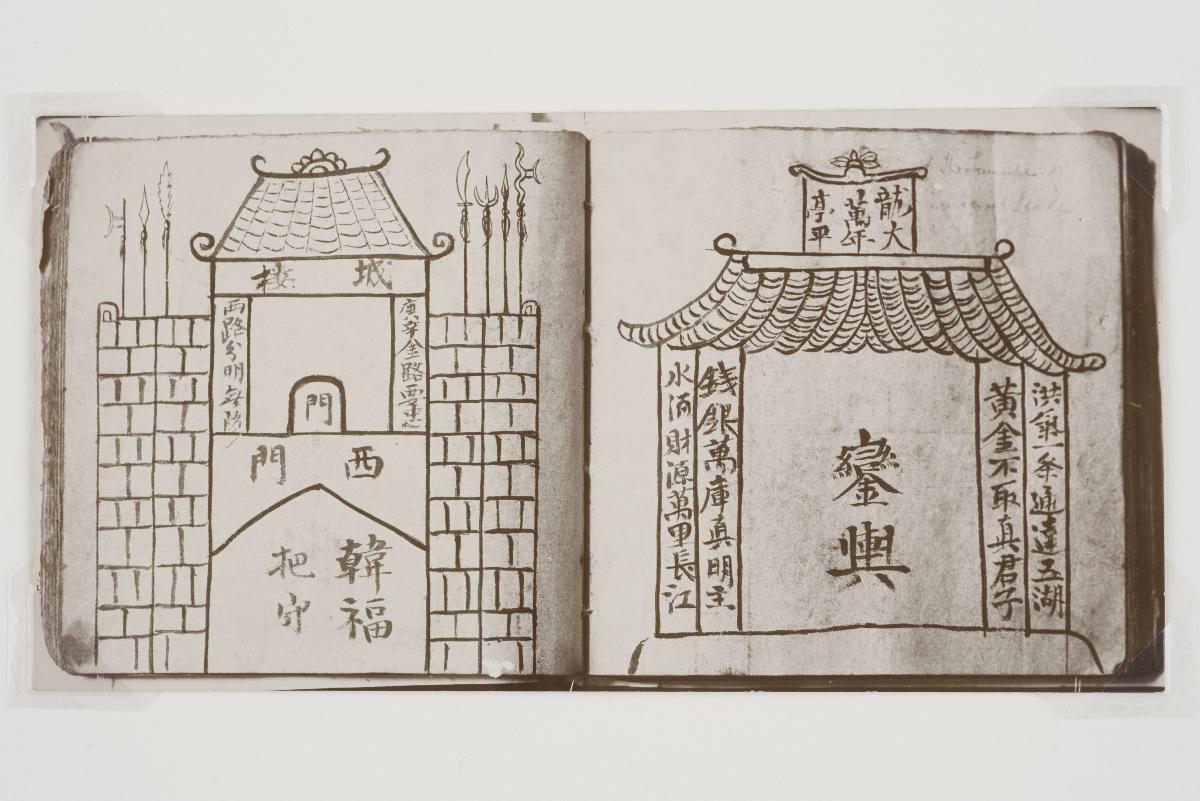 城楼
庚辛金路
西路分明無
門
西門
韓福
把守
龍大
萬年
亭平
鑾輿
洪船一条通達五湖
黃金不取真君子
錢銀萬庫真明主
水河財源萬里長江